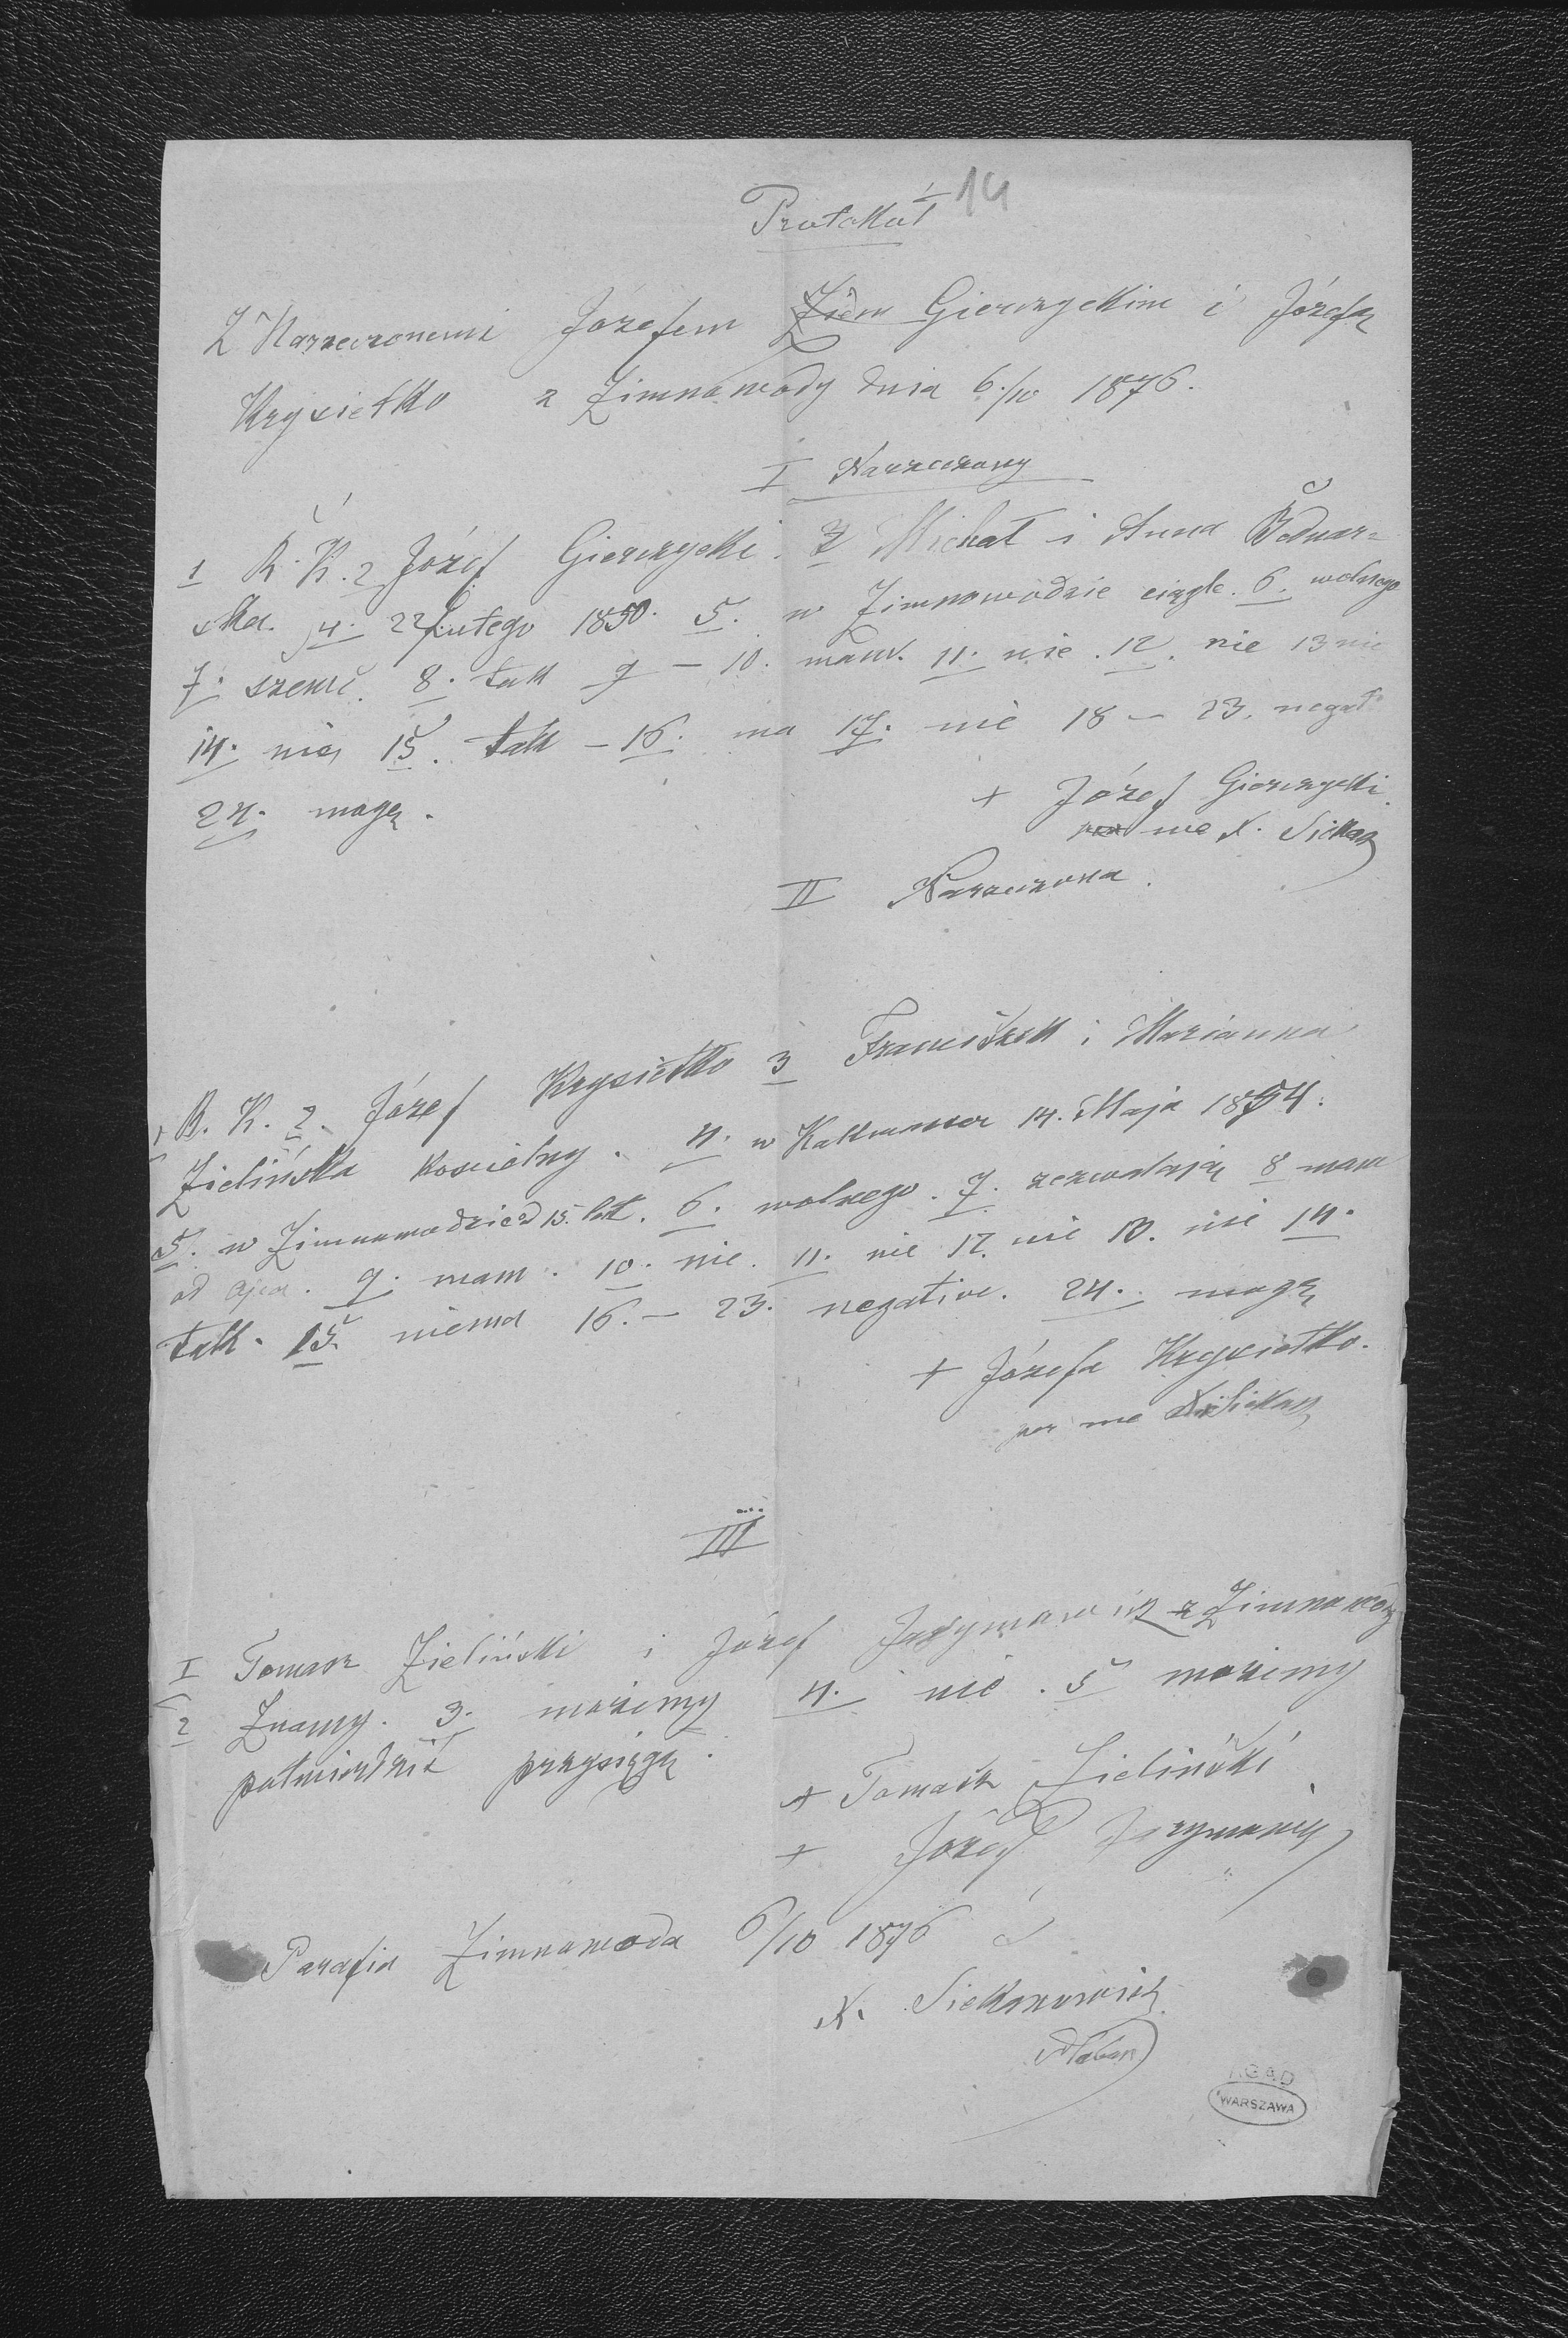 Protokół 14
Z Narzeczonemi Józefem Gierczyckim i Józefą
Krysietko z Zimnawody dnia 6./10 1876.
I Narzeczony
1 R. K. 2 Józef Gierczycki. 3 Michał i Anna Bednar-
ska. 4. 22 Lutego 1850. 5. w Zimnowodzie ciągle. 6. wolnego
7. szewc. 8. tak 9 — 10. mam. 11. nie. 12. nie 13 nie
14. nie, 15. tak — 16. ma 17. nie 18 — 23. negat
24. mogę.
+ Józef Gierczycki
me X. Siekan
II Narzeczona.
1 R. K. 2. Józef Krysietko 3 Franciszek i Marianna
Zielińska . 4. w 14. Maja 1854.
5. w Zimnowodzie 15. lat. 6. wolnego. 7. zezwalają 8 mam
od ojca. 9. mam. 10. nie. 11. nie 12. nie 13. nie 14.
tak. 15. niema 16. — 23. negative. 24. mogę
+ Józefa Krysietko.
per me X. Siekan
III
I Tomasz Zieliński i Józef z Zimnawody
2 Znamy. 3. możemy 4. nie. 5 możemy
potwierdzić przysięgą.
+ Tomasz Zieliński
+ Józef
Parafia Zimnawoda 6/10 1876
X. Siekanowicz
Pleban
AGAD
WARSZAWA